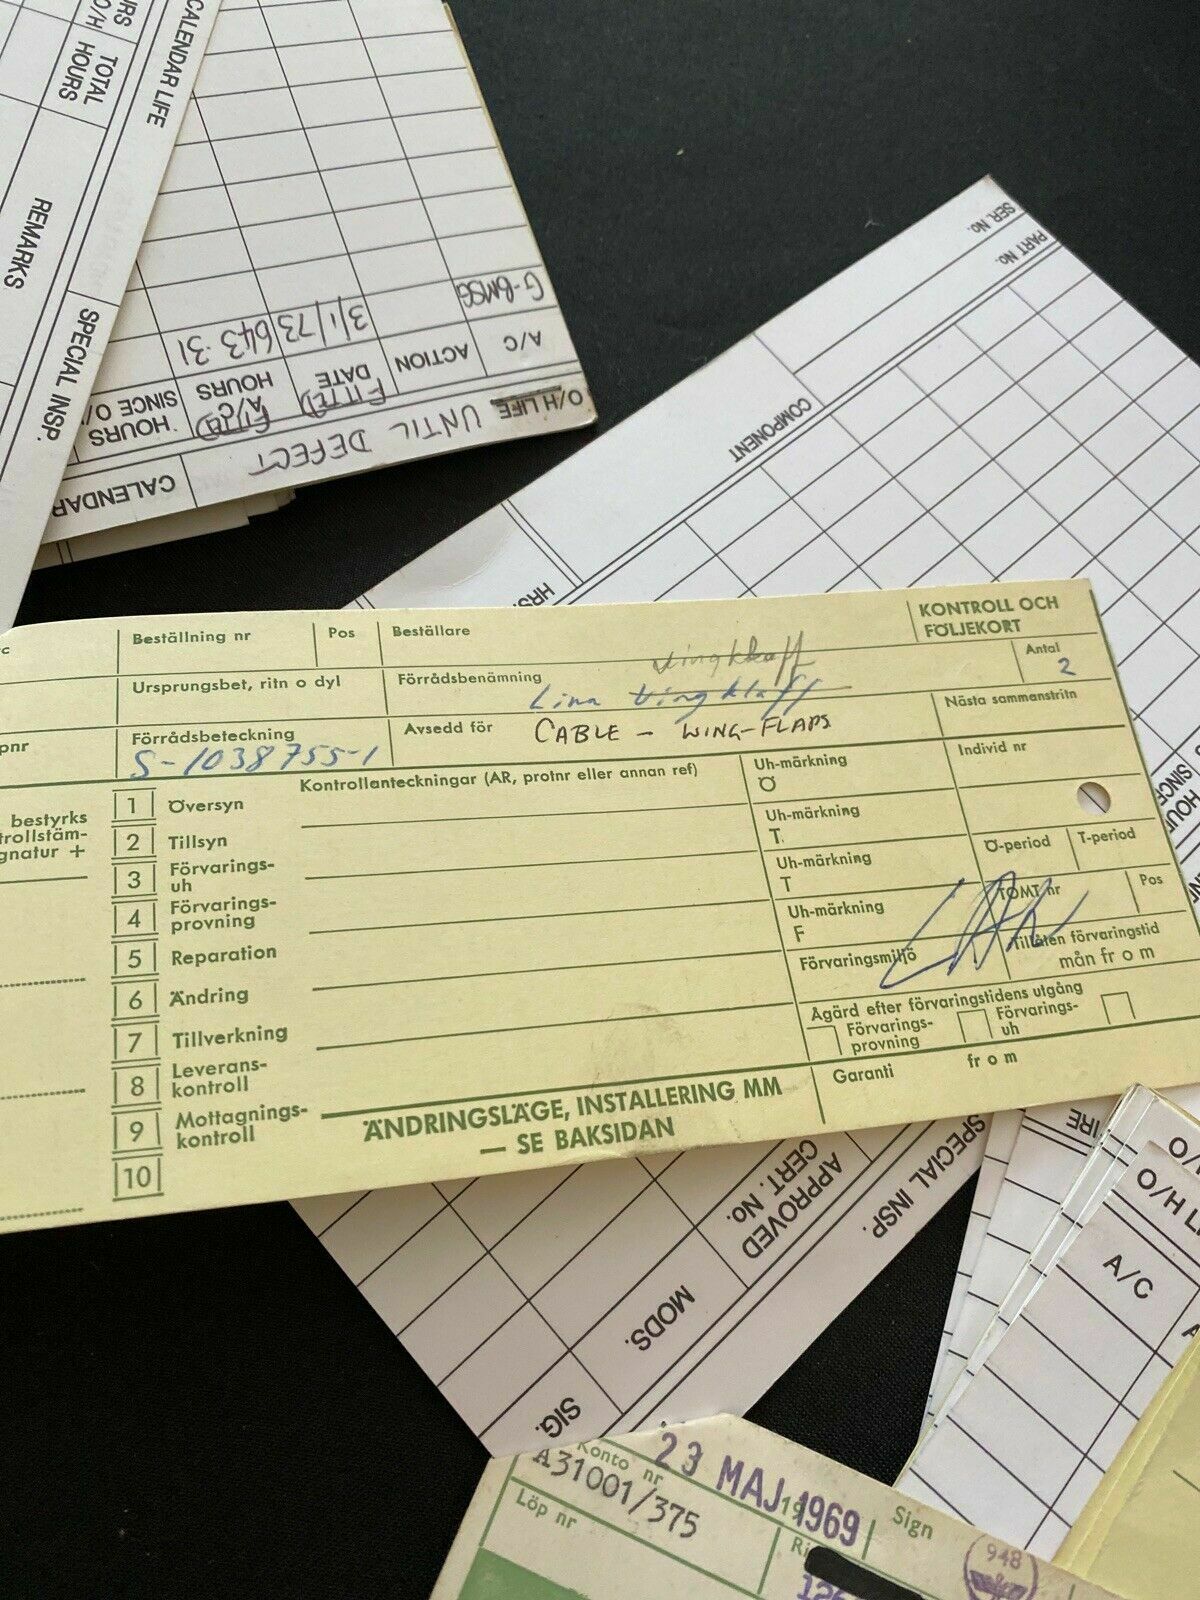 CALENDAR LIFE
TOTAL HOURS
O/H
REMARKS
SPECIAL INSP.
CALENDAR
O/H LIFE UNTIL DEFECT
A/C
ACTION
FITTED DATE
FITTED A/C HOURS
HOURS SINCE O/
G-BMSG
3/1/73
643.31
SER. No.
PART No.
COMPONENT
HRS.
HOU
SINCE
KONTROLL OCH
FÖLJEKORT
Beställning nr
Pos
Beställare
Antal
2
Ursprungsbet, ritn o dyl
Förrådsbenämning
vingklaff
Lina Vingklaff
Förrådsbeteckning
S-1038755-1
Avsedd för
CABLE - WING-FLAPS
Nästa sammanstritn
pnr
Kontrollanteckningar (AR, protnr eller annan ref)
Uh-märkning
Ö
Individ nr
bestyrks
trollstäm-
gnatur +
1 Översyn
2 Tillsyn
3 Förvarings-
uh
4 Förvarings-
provning
5 Reparation
6 Ändring
7 Tillverkning
8 Leverans-
kontroll
9 Mottagnings-
kontroll
10
Uh-märkning
T
Uh-märkning
T
Uh-märkning
F
Ö-period
T-period
TOMT nr
Pos
Förvaringsmiljö
Tillåten förvaringstid
mån fr o m
Ågärd efter förvaringstidens utgång
Förvarings-
provning
Förvarings-
uh
Garanti
fr o m
ÄNDRINGSLÄGE, INSTALLERING MM
— SE BAKSIDAN
SPECIAL INSP.
APPROVED
CERT. No.
MODS.
SIG.
IRE
O/
O/H L
A/C
Konto nr
A31001/375
23 MAJ 1969
Löp nr
Sign
948